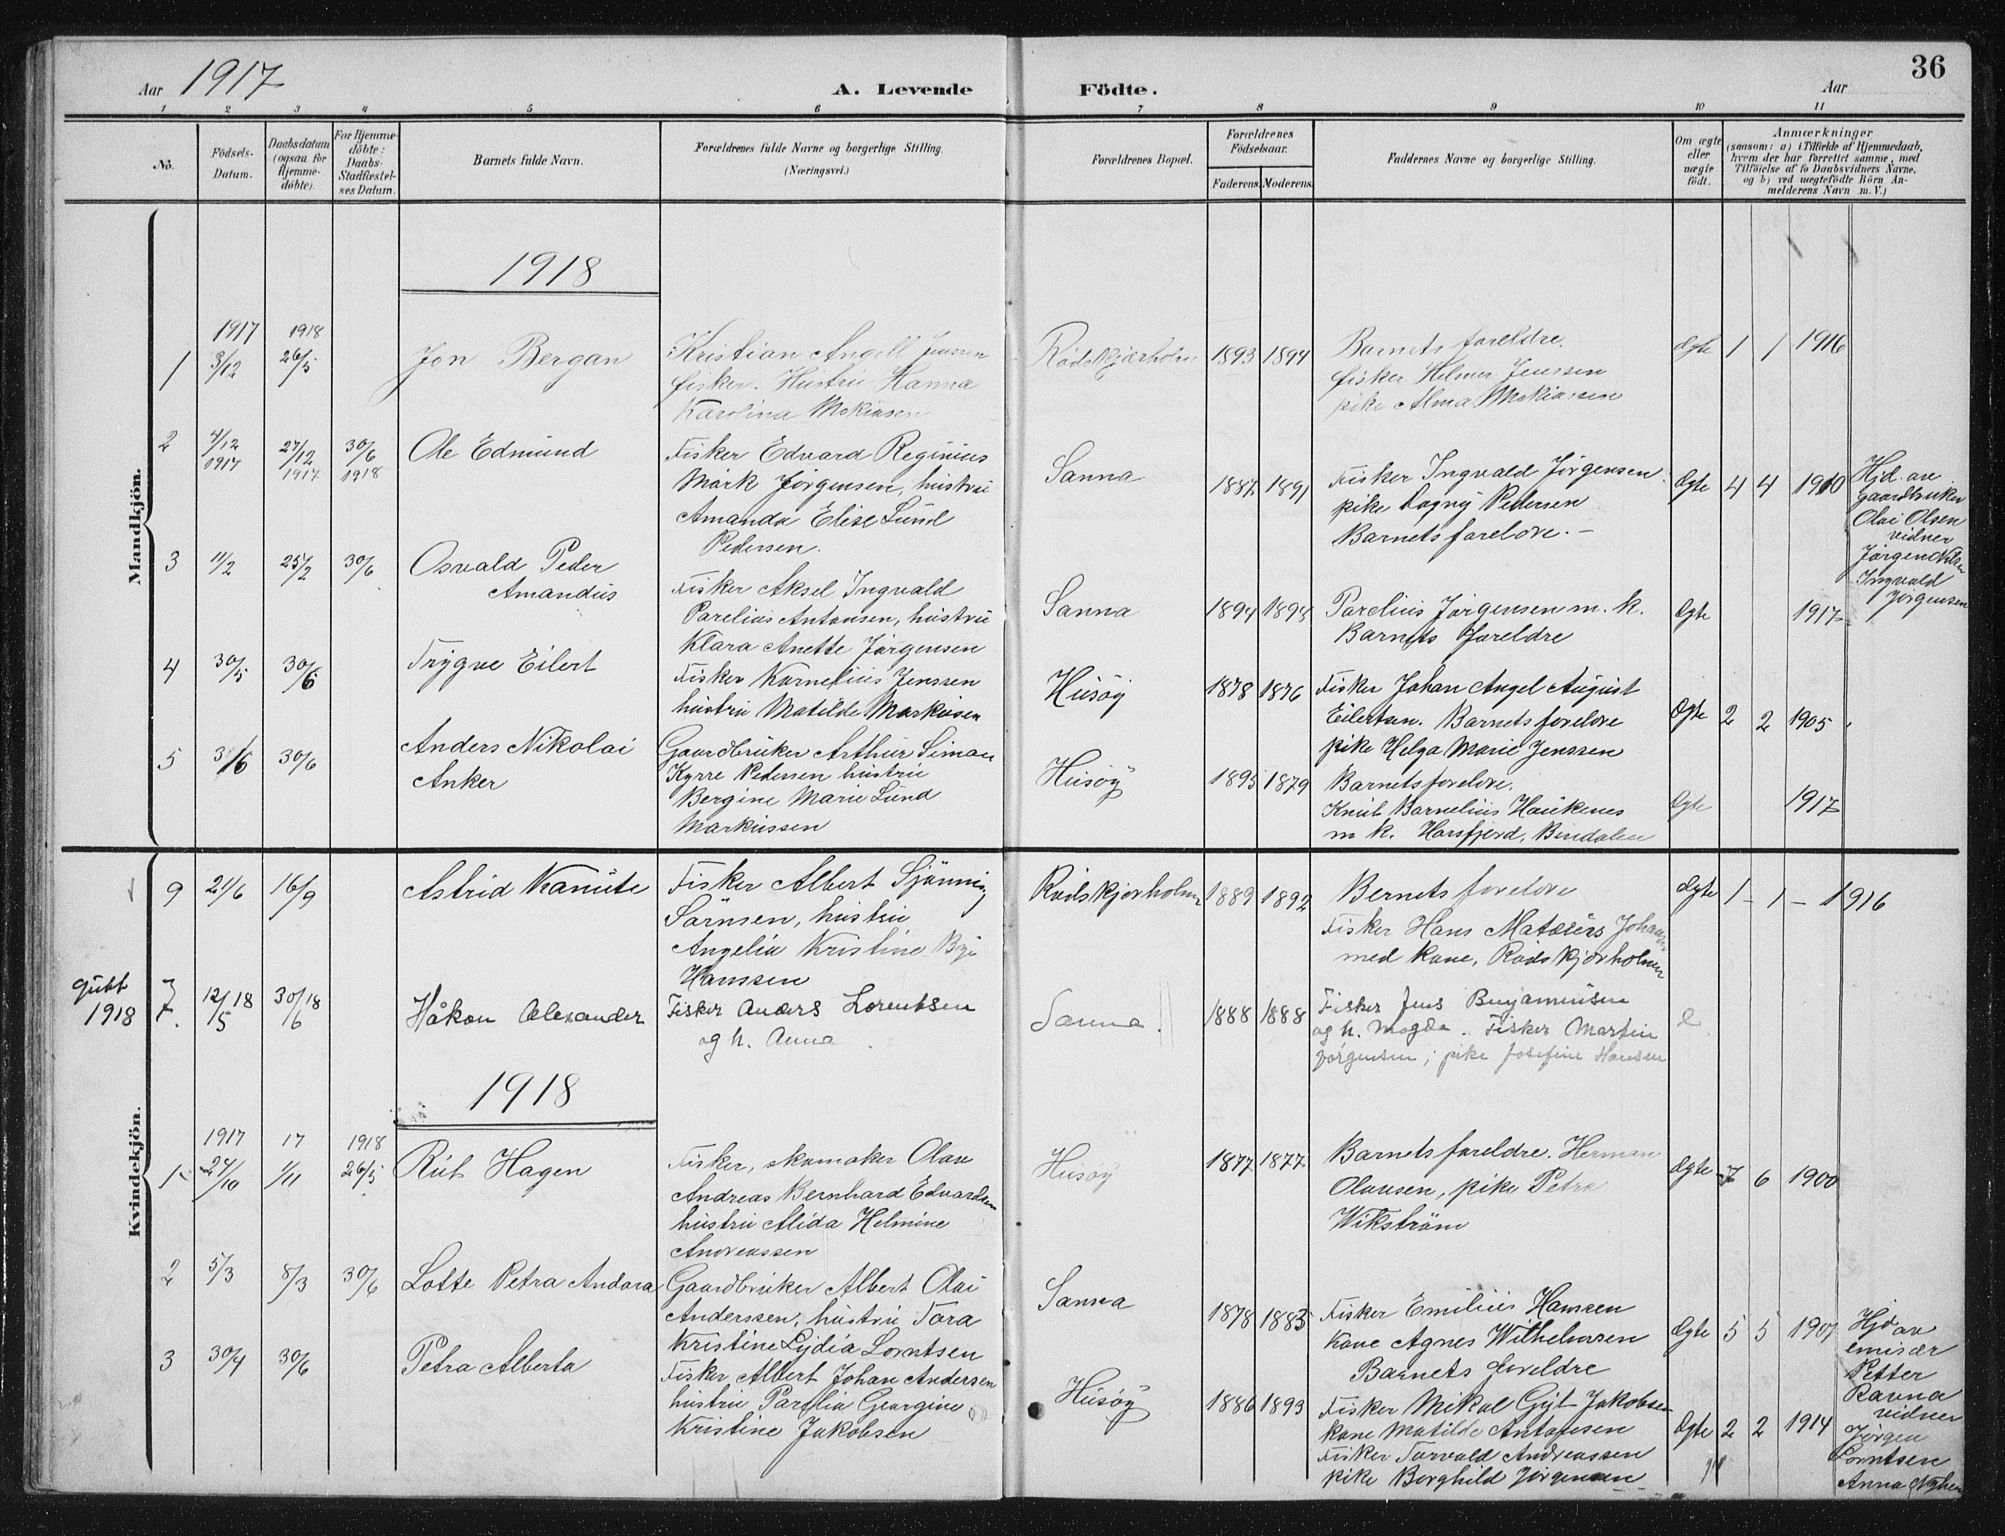 Aar 1917 A. Levende Födte. Aar 36
1 2 3 4 5 6 7 8 9 10 11
No.
Födsels-Datum.
Daabsdatum (ogsaa for Hjemme-döbte).
For Hjemme-döbte: Daabs-Stadfæstel-ses Datum.
Barnets fulde Navn.
Forældrenes fulde Navne og borgerlige Stilling.
(Næringsvei.)
Forældrenes Bopæl.
Forældrenes Födselsaar.
Faderens. Moderens.
Faddernes Navne og borgerlige Stilling.
Om ægte eller uægte födt.
Anmærkninger
(saasom: a) i Tilfælde af Hjemmedaab,
hvem der har forrettet samme, med
Tilföielse af to Daabsvidners Navne,
og b) ved uægtefödte Börn An-
melderens Navn m. V.)
Mandkjön.
1918
1917 1918
1 3/12 26/5 Jon Bergan Kristian Angell Jenssen Rödskjærholm 1893 1894 Barnets foreldre. Ægte 1 1 1916
fisker. Hustru Hanna fisker Helmer Jenssen
Karoline pike Alma
2 4/12 1917 27/12 1917 30/6 1918 Ole Edmund Fisker Edvard Reginius Sanna 1887 1891 Fisker Ingvald Jörgensen Ægte 4 4 1910 Hjd. av
Mörk Jörgensen, hustru pike Dagny Pedersen gaardbruker
Amanda Elise Lund Barnets foreldre. Olai Olsen
Pedersen. vidner
3 11/2 25/2 30/6 Osvald Peder Fisker Aksel Ingvald Sanna 1894 Parelius Jörgensen m. k. Ægte 1917 Jörgen
Amandus Parelius Antonsen, hustru Barnets foreldre Ingvald
Klara Anette Jörgensen Jörgensen
4 30/5 30/6 Trygve Eilert Fisker Kornelius Jenssen Husöy 1878 1876 Fisker Johan Angel August Ægte 2 2 1905
hustru Matilde Markusen Eilertsen. Barnets foreldre
pike Helga Marie Jenssen
5 3/6 30/6 Anders Nikolai Gaardbruker Arthur Simon Husöy 1895 1879 Barnets foreldre. Ægte 1917
Anker Kyrre Pedersen hustru Knut Barnelius Haukenes
Bergine Marie Lund m k. Horsfjord, Bindalen
Markussen
Kvindekjön.
9 21/6 16/9 Astrid Kanute Fisker Albert Sjönning Rödskjærholmen 1889 1892 Barnets foreldre Ægte 1 - 1 - 1916
Sörnsen, hustru Fisker Hans
Angelia Kristine med kone, Rödskjærholmen
Hanssen
gutt 1918
7. 12/5 18 30/6 18 Håkon Alexander Fisker Anders Lorentsen Sanna. 1888 1888 Fisker Jens Benjaminsen
og h. Anna og h. Magda. Fisker Martin
Jörgensen, pike Josefine Hansen
1918
1917 17 1918
1 24/10 1/11 26/5 Rut Hagen Fisker, skomaker Olav Husöy 1877 1877 Barnets foreldre. Herman Ægte 7 6 1900
Andreas Bernhard Edvardsen Olausen, pike Petra
hustru Alida Helmine Wikström
Andreassen
2 5/3 8/3 30/6 Lotte Petra Andora Gaardbruker Albert Olai Sanna 1878 1883 Fisker Emilius Hansen Ægte 5 5 1907 Hjd av
Anderssen, hustru Tora kone Agnes Wilhelmsen emisær
Kristine Lydia Lorntsen Barnets foreldre Petter
3 30/4 30/6 Petra Alberta Fisker Albert Johan Andersen Husöy 1886 1893 Fisker Mikal Jakobsen Ægte 2 2 1914 Ravna
hustru Parelia Georgine kone Matilde Antonsen vidner
Kristine Jakobsen Fisker Torvald Andreassen Jörgen
pike Borghild Jörgensen Lorntsen
Anna